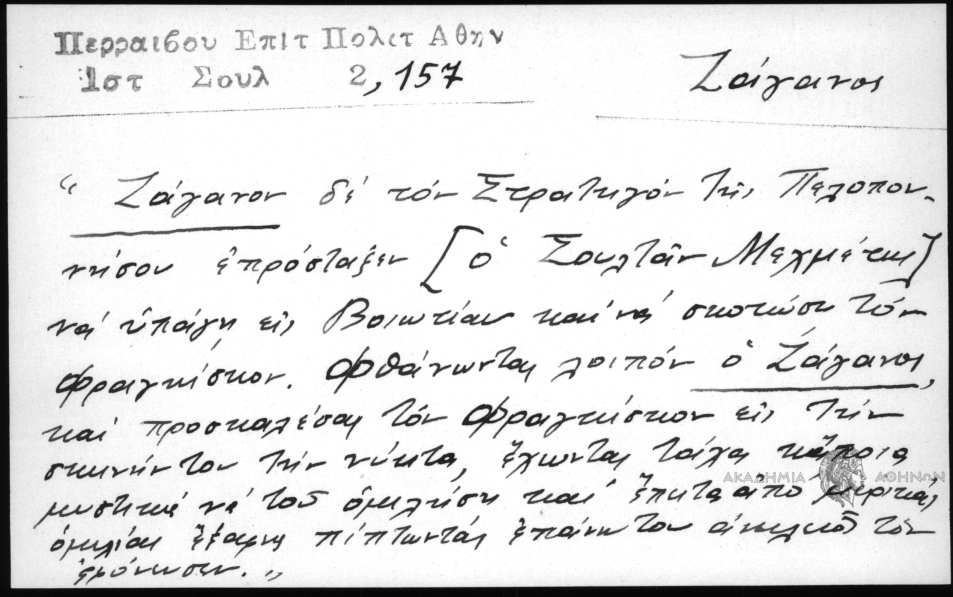 Περραιβου Επιτ Πολιτ Αθην
Ιστ Σουλ 2, 157
Ζάγανος
“ Ζάγανον δέ τόν Στρατηγόν τῆς Πελοπον-
νήσου ἐπρόσταξεν [ὁ Σουλτᾶν Μεχμέτης]
νά ὑπάγῃ εἰς Βοιωτίαν καί νά σκοτώσῃ τόν
Φραγκίσκον. Φθάνωντας λοιπόν ὁ Ζάγανος,
καί προσκαλέσας τόν Φραγκίσκον εἰς τήν
σκηνήν του τήν νύκτα, ἔχωντας τάχα κἄποια
μυστικά νά τοῦ ὁμιλήσῃ καί ἔπειτα ἀπό μερικάς
ὁμιλίας ἔξαφνα πίπτωντας ἐπάνω του τόν
ΑΚΑΔΗΜΙΑ ΑΘΗΝΩΝ